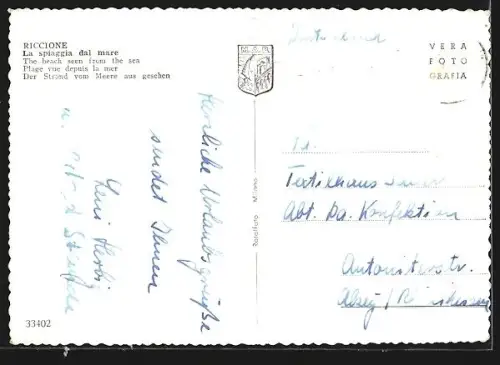 RICCIONE
La spiaggia dal mare
The beach seen from the sea
Plage vue depuis la mer
Der Strand vom Meere aus gesehen
VERA
FOTO
GRAFIA
Herzliche Urlaubsgrüße
sendet Ihnen
Leni Herbi
u.
Rotalfoto - Milano
Textilhaus
Abt. Da. Konfektion
Antoniterstr.
Alzey / Rheinhessen
33402